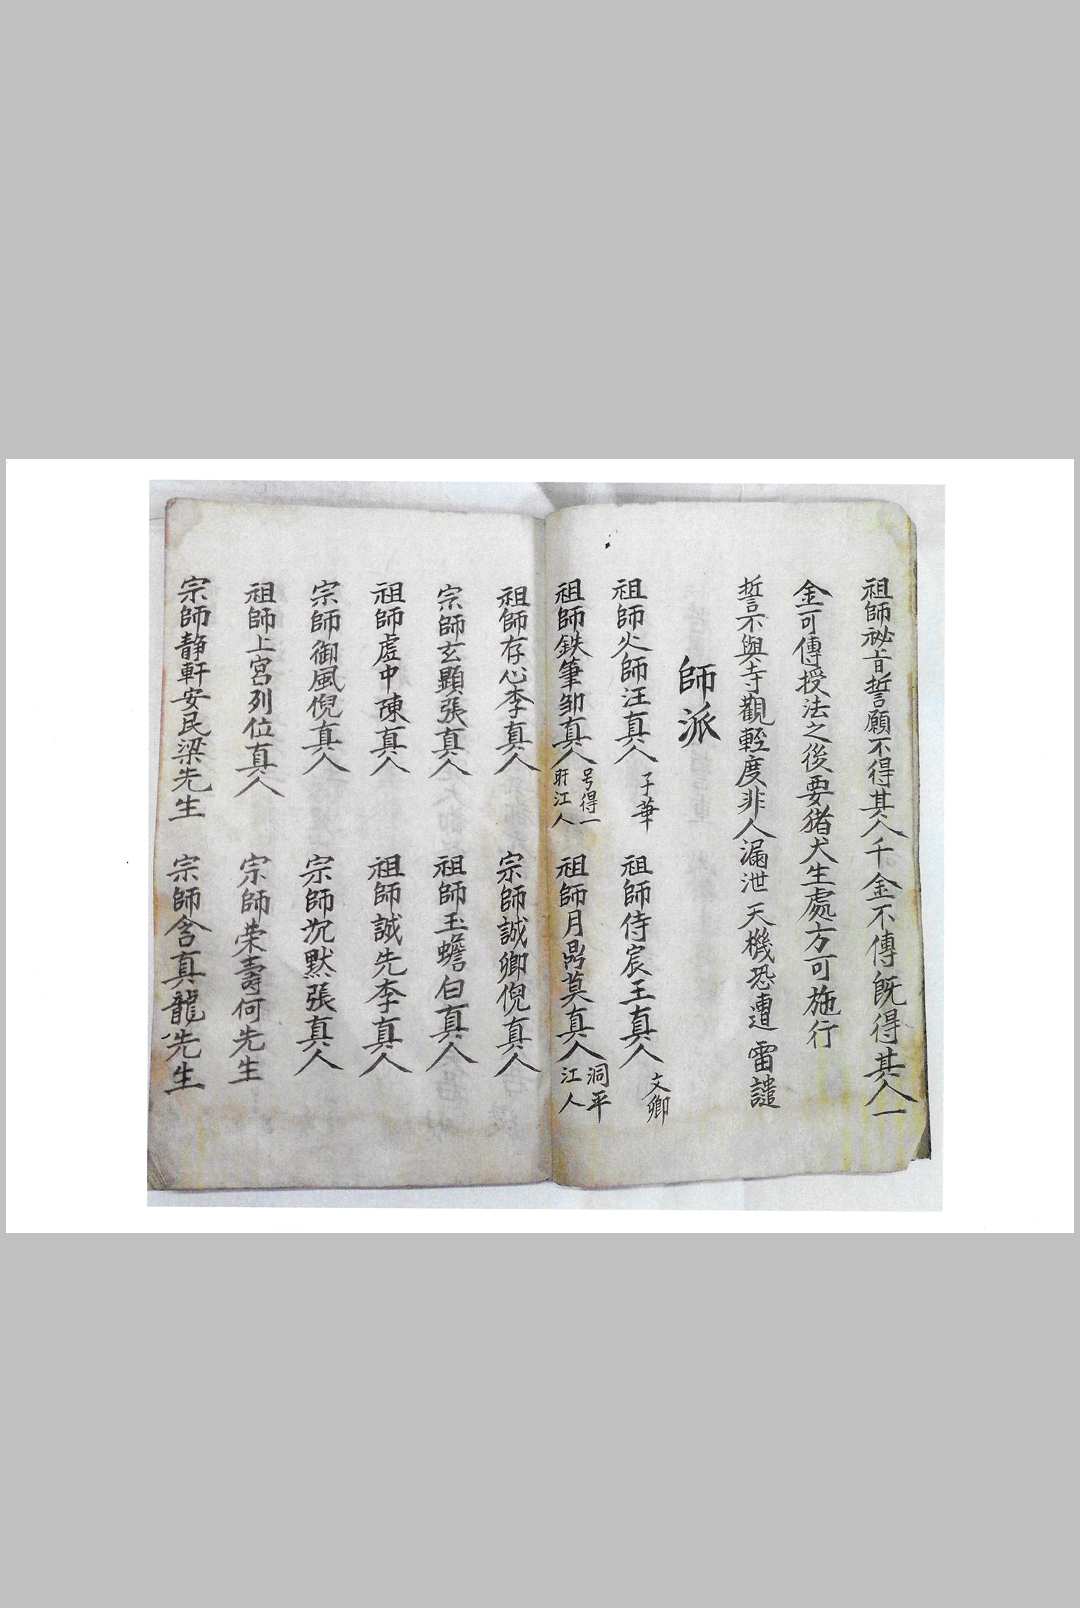 祖師祕旨誓願不得其人千金不傳既得其人一
金可傳授法之後要猪犬生處方可施行
誓不與寺觀輕度非人漏泄天機恐遭雷譴
師派
祖師火師汪真人 子華 祖師侍宸王真人 文卿
祖師鉄筆邹真人 号得一 盱江人 祖師月鼎莫真人 洞平江人
祖師存心李真人 宗師誠卿倪真人
宗師玄顯張真人 祖師玉蟾白真人
祖師虗中陳真人 祖師誠先李真人
宗師御風倪真人 宗師沉默張真人
祖師上宮列位真人 宗師荣壽何先生
宗師静軒安民梁先生 宗師含真龍先生